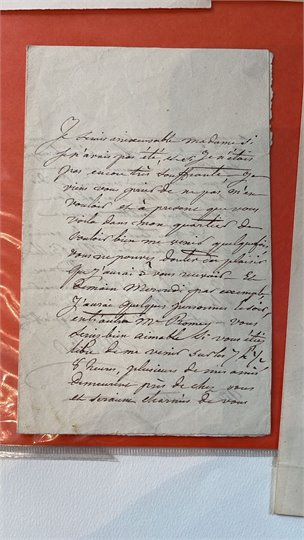 Je serais inexcusable madame si
je n'avais pas été, et si je n'étais
pas encore très souffrante. Je
viens vous prier de ne pas m'en
vouloir et à présent que vous
voila dans mon quartier de
vouloir bien me venir quelquefois,
vous ne pouvez douter du plaisir
que j'aurai à vous recevoir. Et
demain Mercredi par exemple
j'aurai quelques personnes le soir,
entr'autre Mr vous
seriez bien aimable si vous étiez
libre de me venir sur les 7 h ½
8 heures, plusieurs de mes amies
demeurent près de chez vous
et seraient charmés de vous